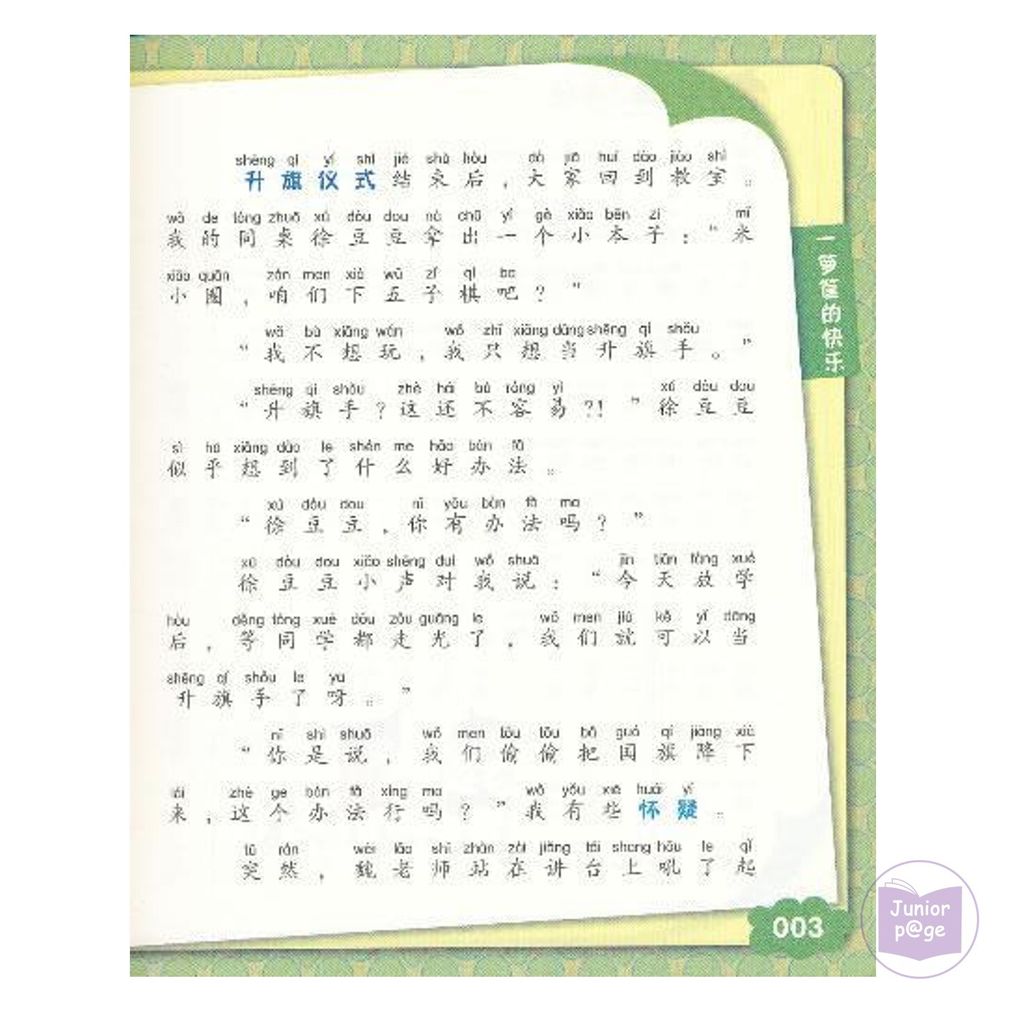 shēng qí yí shì jié shù hòu dà jiā huí dào jiào shì
升旗仪式结束后，大家回到教室。
wǒ de tóng zhuō xú dòu dou ná chū yí gè xiǎo běn zi mǐ
我的同桌徐豆豆拿出一个小本子：“米
xiǎo quān zán men xià wǔ zǐ qí ba
小圈，咱们下五子棋吧？”
wǒ bù xiǎng wán wǒ zhǐ xiǎng dāng shēng qí shǒu
“我不想玩，我只想当升旗手。”
shēng qí shǒu zhè hái bù róng yì xú dòu dou
“升旗手？这还不容易？！”徐豆豆
sì hū xiǎng dào le shén me hǎo bàn fǎ
似乎想到了什么好办法。
xú dòu dou nǐ yǒu bàn fǎ ma
“徐豆豆，你有办法吗？”
xú dòu dou xiǎo shēng duì wǒ shuō jīn tiān fàng xué
徐豆豆小声对我说：“今天放学
hòu děng tóng xué dōu zǒu guāng le wǒ men jiù kě yǐ dāng
后，等同学都走光了，我们就可以当
shēng qí shǒu le ya
升旗手了呀。”
nǐ shì shuō wǒ men tōu tōu bǎ guó qí jiàng xià
“你是说，我们偷偷把国旗降下
lái zhè ge bàn fǎ xíng ma wǒ yǒu xiē huái yí
来，这个办法行吗？”我有些怀疑。
tū rán wèi lǎo shī zhàn zài jiǎng tái shang hǒu le qǐ
突然，魏老师站在讲台上吼了起
一箩筐的快乐
003
Junior
p@ge